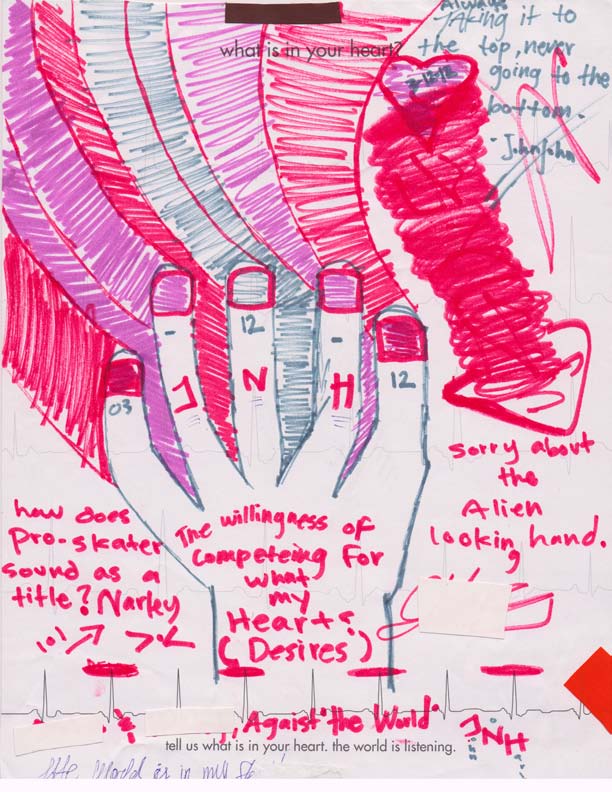 what is in your heart?
Always
Taking it to
the top, never
going to the
bottom.
- JohnJohn
03
12
12
J N H
sorry about
the
Alien
lookin hand.
how does
Pro-skater
sound as a
title? Narley
The willingness of
competeing For
what
my
Hearts
(Desires)
& Agaist "the World"
JNH
tell us what is in your heart. the world is listening.